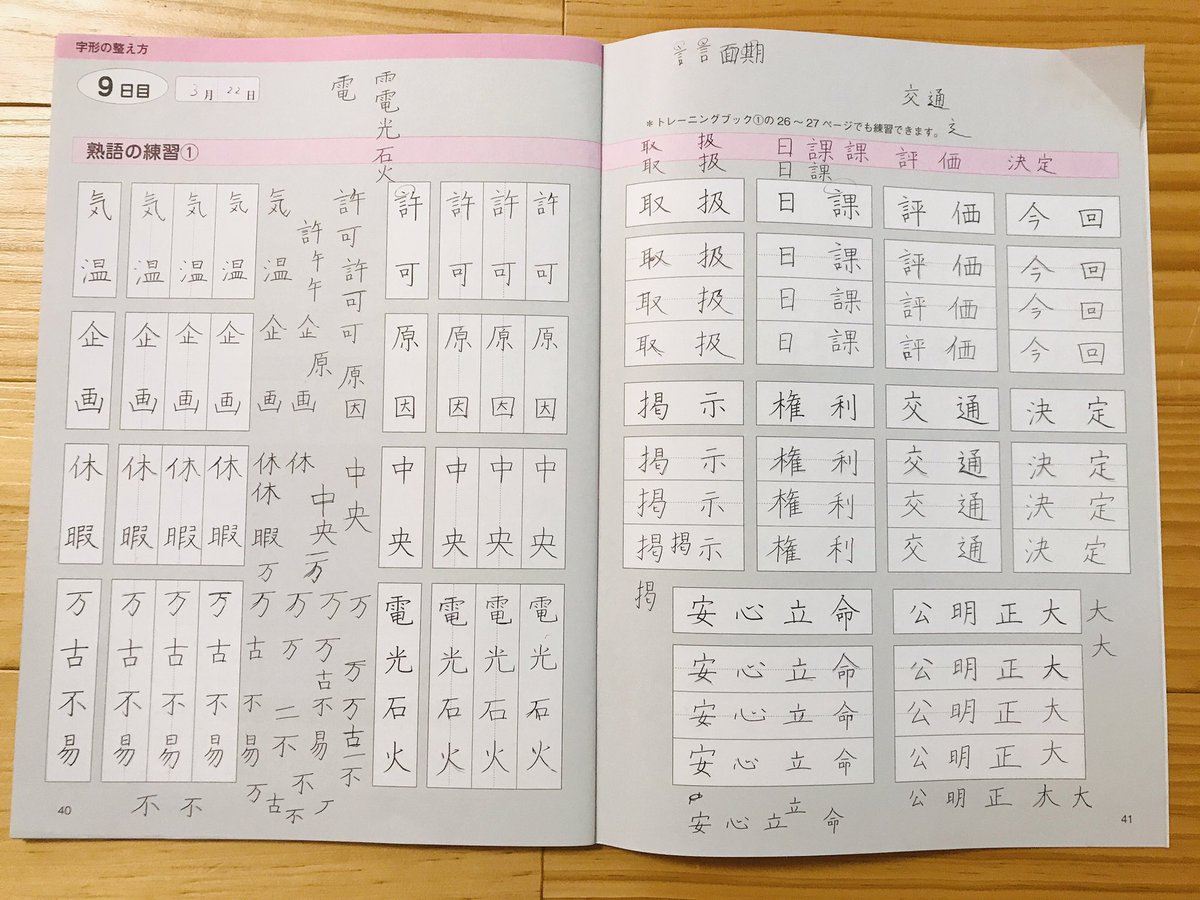 字形の整え方
9日目
3月22日
電 電
電
光
石
火
熟語の練習①
気温 気温 気温 気温 気温
許可 許可
許 午 午
許可 可
許可 許可 許可 許可
企画 企画 企画 企画 企画 企画
原 原因
原因 原因 原因 原因
休暇 休暇 休暇 休暇 休暇 休 休
中央 中央
中央 中央 中央 中央
万 万 万
万古不易 万古不易 万古不易 万古不易 万古不易
万 万 万 万 万
古 不 易
二 不 不
万 万 古 一 不
万 古 不
不 不
電光石火 電光石火 電光石火 電光石火
40
言 言 面 期
交通
定
＊トレーニングブック①の26〜27ページでも練習できます。
取 扱 日 課 課 評 価 決定
取 扱 日 課
取扱 日課 評価 今回
取扱 日課 評価 今回
取扱 日課 評価 今回
取扱 日課 評価 今回
掲示 権利 交通 決定
掲示 権利 交通 決定
掲示 権利 交通 決定
掲掲示 権利 交通 決定
掲
安心立命 公明正大 大
安心立命 公明正大 大
安心立命 公明正大
安心立命 公明正大
安心立 立 命 公明正大 大
41